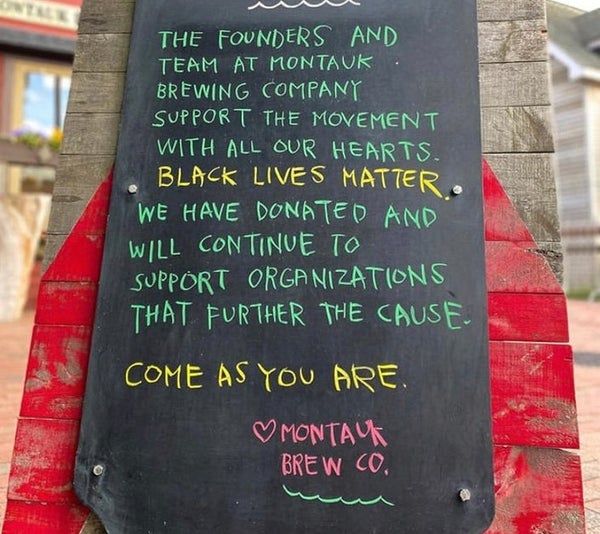 THE FOUNDERS AND
TEAM AT MONTAUK
BREWING COMPANY
SUPPORT THE MOVEMENT
WITH ALL OUR HEARTS.
BLACK LIVES MATTER.
WE HAVE DONATED AND
WILL CONTINUE TO
SUPPORT ORGANIZATIONS
THAT FURTHER THE CAUSE.
COME AS YOU ARE.
♡ MONTAUK
BREW CO.